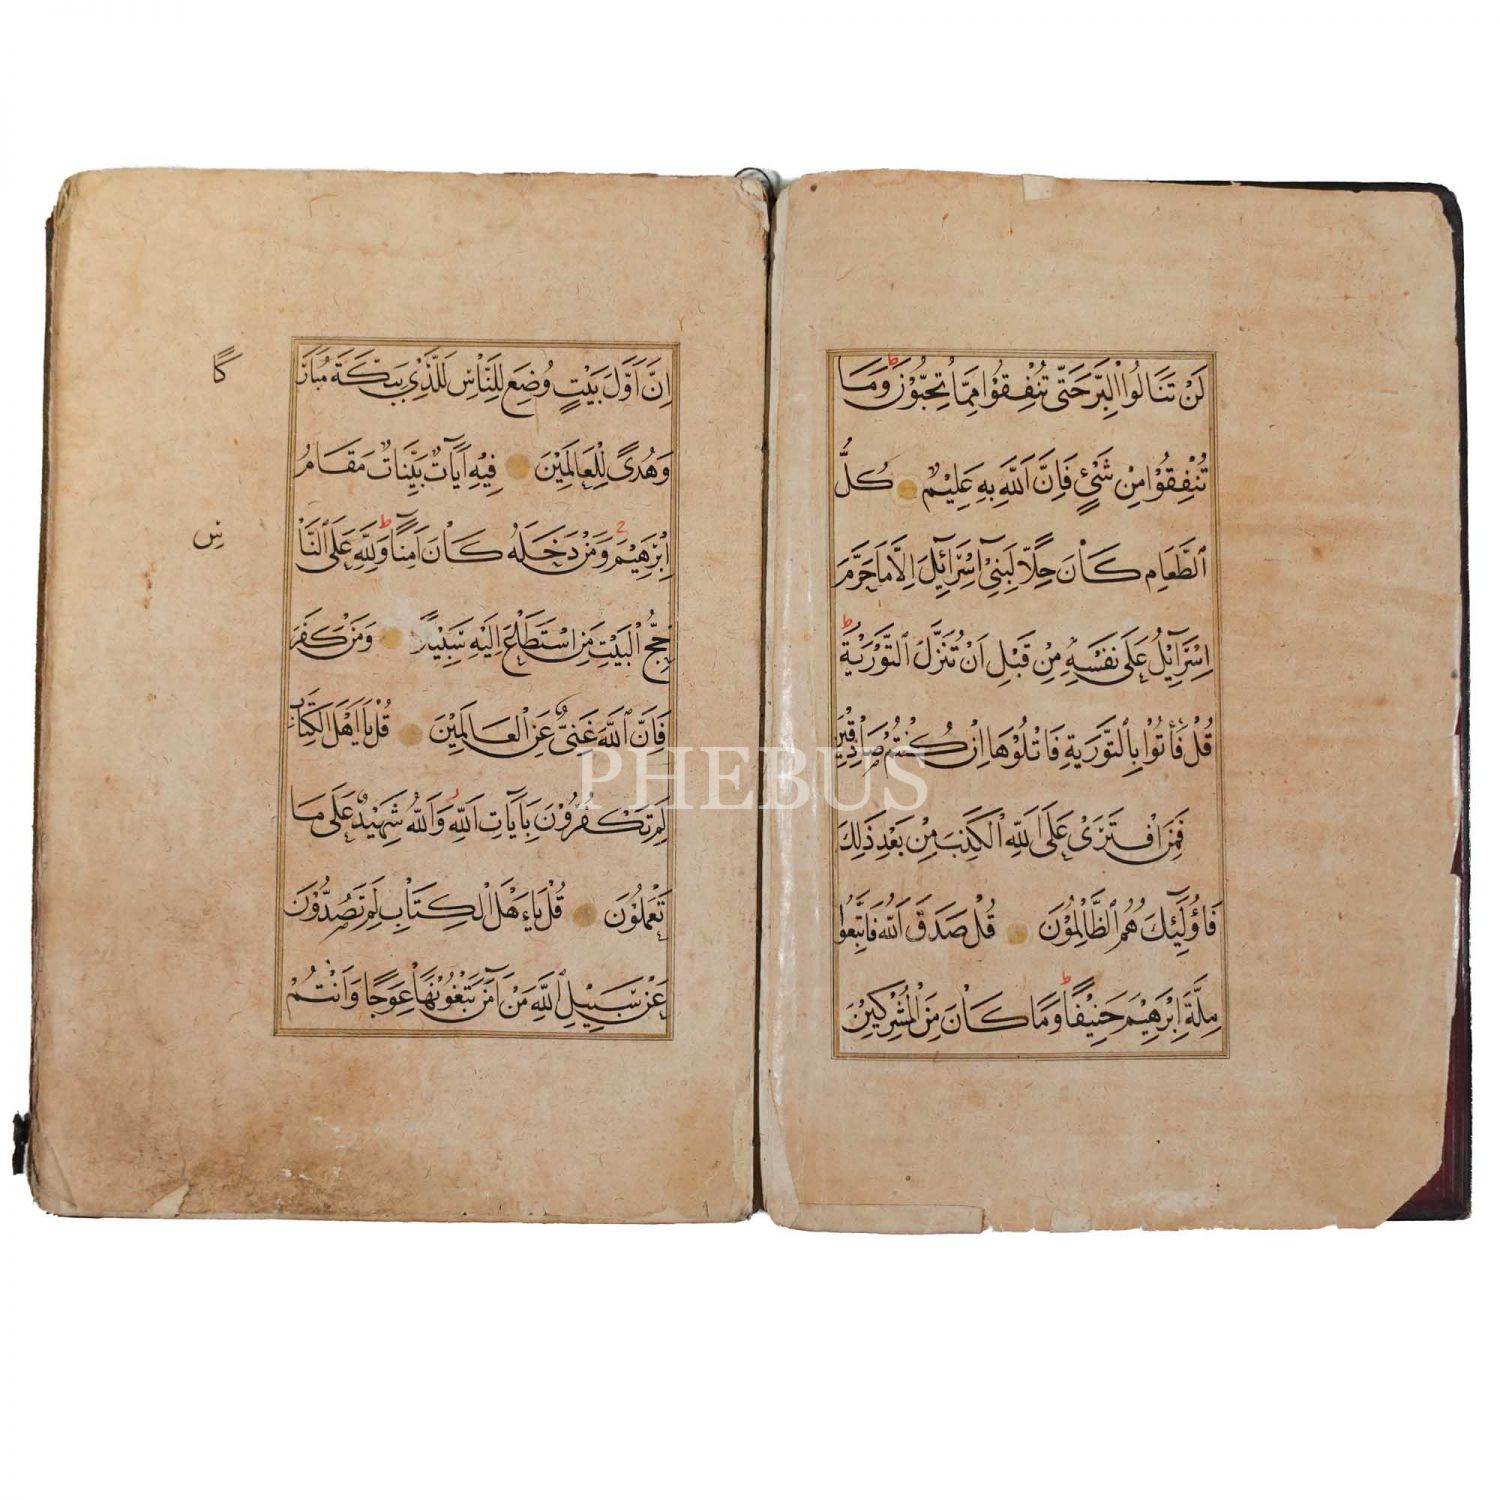 لَنْ تَنَالُوا الْبِرَّ حَتَّى تُنْفِقُوْا مِمَّا تُحِبُّوْنَ ط وَمَا
تُنْفِقُوْا مِنْ شَئٍ فَاِنَّ اللّٰهَ بِهِ عَلِيْمٌ كُلُّ
الطَّعَامِ كَاْنَ حِلًّا لِبَنِىٓ اِسْرَآئِلَ اِلَّا مَا حَرَّمَ
اِسْرَآئِلُ عَلَى نَفْسِهِ مِنْ قَبْلِ اَنْ تُنَزَّلَ التَّوْرٰيةُ ط
قُلْ فَأْتُوْا بِالتَّوْرٰيةِ فَاتْلُوْهَا اِنْ كُنْتُمْ صَاْدِقِيْنَ
فَمَنِ افْتَرَىْ عَلَى اللّٰهِ الْكَذِبَ مِنْ بَعْدِ ذَلِكَ
فَاُولَٓئِكَ هُمُ الظَّالِمُوْنَ قُلْ صَدَقَ اللّٰهُ فَاتَّبِعُوا
مِلَّةَ اِبْرٰهِيْمَ حَنِيْفًا ط وَمَا كَاْنَ مِنَ الْمُشْرِكِيْنَ
اِنَّ اَوَّلَ بَيْتٍ وُضِعَ لِلنَّاْسِ لَلَّذِىْ بِبَكَّةَ مُبَارَ
كًا
وَهُدًى لِلْعَالَمِيْنَ فِيْهِ اٰيَاتٌ بَيِّنَاتٌ مَقَامُ
اِبْرٰهِيْمَ وَمَنْ دَخَلَهُ كَاْنَ اٰمِنًا ط وَلِلّٰهِ عَلَى النَّا
سِ
حِجُّ الْبَيْتِ مَنِ اسْتَطَاْعَ اِلَيْهِ سَبِيْلًا وَمَنْ كَفَرَ
فَاِنَّ اللّٰهَ غَنِىٌّ عَنِ الْعَالَمِيْنَ قُلْ يَا اَهْلَ الْكِتَابِ
لِمَ تَكْفُرُوْنَ بِاٰيَاتِ اللّٰهِ وَاللّٰهُ شَهِيْدٌ عَلَى مَا
تَعْمَلُوْنَ قُلْ يَاءَهْلَ الْكِتَاْبِ لِمَ تَصُدُّوْنَ
عَنْ سَبِيْلِ اللّٰهِ مَنْ اٰمَنَ تَبْغُوْنَهَاْ عِوَجًا وَاَنْتُمْ
PHEBUS